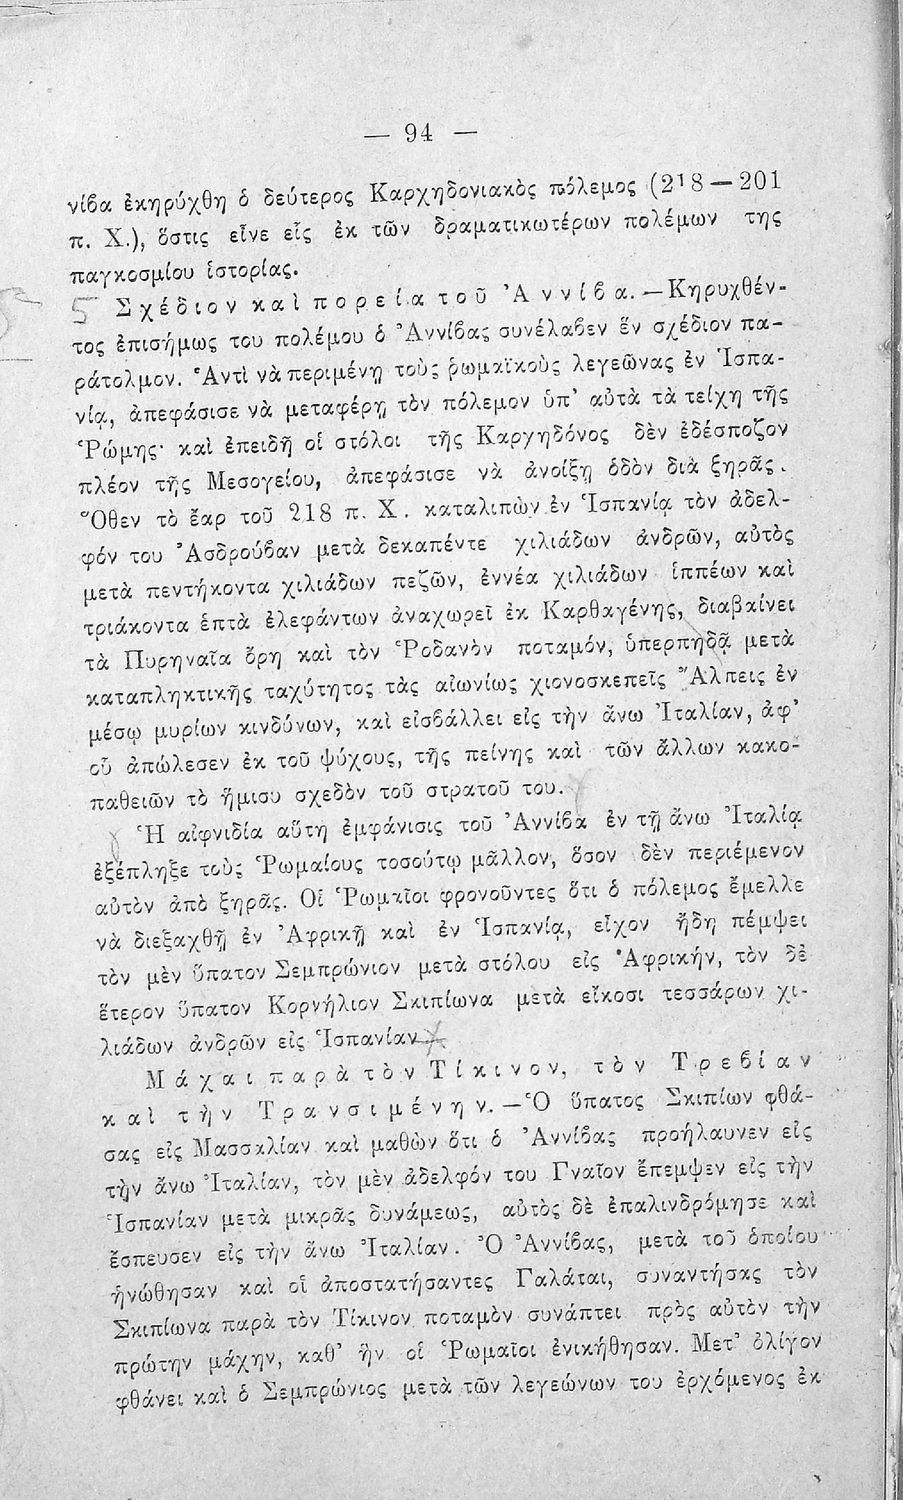 — 94 —
νίβα ἐκηρύχθη ὁ δεύτερος Καρχηδονιακὸς πόλεμος (218 — 201
π. Χ.), ὅστις εἶνε εἷς ἐκ τῶν δραματικωτέρων πολέμων της
παγκοσμίου ἱστορίας.
5 Σχέδιον καὶ πορεία τοῦ Ἀννίβα. — Κηρυχθέν-
τος ἐπισήμως του πολέμου ὁ Ἀννίβας συνέλαβεν ἓν σχέδιον πα-
ράτολμον. Ἀντὶ νὰ περιμένῃ τοὺς ῥωμαϊκοὺς λεγεῶνας ἐν Ἱσπα-
νίᾳ, ἀπεφάσισε νὰ μεταφέρῃ τὸν πόλεμον ὑπ' αὐτὰ τὰ τείχη τῆς
Ῥώμης· καὶ ἐπειδὴ οἱ στόλοι τῆς Καρχηδόνος δὲν ἐδέσποζον
πλέον τῆς Μεσογείου, ἀπεφάσισε νὰ ἀνοίξῃ ὁδὸν διὰ ξηρᾶς.
Ὅθεν τὸ ἔαρ τοῦ 218 π. Χ. καταλιπὼν ἐν Ἱσπανίᾳ τὸν ἀδελ-
φόν του Ἀσδρούβαν μετὰ δεκαπέντε χιλιάδων ἀνδρῶν, αὐτὸς
μετὰ πεντήκοντα χιλιάδων πεζῶν, ἐννέα χιλιάδων ἱππέων καὶ
τριάκοντα ἑπτὰ ἐλεφάντων ἀναχωρεῖ ἐκ Καρθαγένης, διαβαίνει
τὰ Πυρηναῖα ὄρη καὶ τὸν Ῥοδανὸν ποταμόν, ὑπερπηδᾷ μετὰ
καταπληκτικῆς ταχύτητος τὰς αἰωνίως χιονοσκεπεῖς Ἄλπεις ἐν
μέσῳ μυρίων κινδύνων, καὶ εἰσβάλλει εἰς τὴν ἄνω Ἰταλίαν, ἀφ'
οὗ ἀπώλεσεν ἐκ τοῦ ψύχους, τῆς πείνης καὶ τῶν ἄλλων κακο-
παθειῶν τὸ ἥμισυ σχεδὸν τοῦ στρατοῦ του.
Ἡ αἰφνιδία αὕτη ἐμφάνισις τοῦ Ἀννίβα ἐν τῇ ἄνω Ἰταλίᾳ
ἐξέπληξε τοὺς Ῥωμαίους τοσούτῳ μᾶλλον, ὅσον δὲν περιέμενον
αὐτὸν ἀπὸ ξηρᾶς. Οἱ Ῥωμαῖοι φρονοῦντες ὅτι ὁ πόλεμος ἔμελλε
νὰ διεξαχθῇ ἐν Ἀφρικῇ καὶ ἐν Ἱσπανίᾳ, εἶχον ἤδη πέμψει
τὸν μὲν ὕπατον Σεμπρώνιον μετὰ στόλου εἰς Ἀφρικήν, τὸν δὲ
ἕτερον ὕπατον Κορνήλιον Σκιπίωνα μετὰ εἴκοσι τεσσάρων χι-
λιάδων ἀνδρῶν εἰς Ἱσπανίαν.
Μάχαι παρὰ τὸν Τίκινον, τὸν Τρεβίαν
καὶ τὴν Τρανσιμένην. — Ὁ ὕπατος Σκιπίων φθά-
σας εἰς Μασσαλίαν καὶ μαθὼν ὅτι ὁ Ἀννίβας προήλαυνεν εἰς
τὴν ἄνω Ἰταλίαν, τὸν μὲν ἀδελφόν του Γναῖον ἔπεμψεν εἰς τὴν
Ἱσπανίαν μετὰ μικρᾶς δυνάμεως, αὐτὸς δὲ ἐπαλινδρόμησε καὶ
ἔσπευσεν εἰς τὴν ἄνω Ἰταλίαν. Ὁ Ἀννίβας, μετὰ τοῦ ὁποίου
ἡνώθησαν καὶ οἱ ἀποστατήσαντες Γαλάται, συναντήσας τὸν
Σκιπίωνα παρὰ τὸν Τίκινον ποταμὸν συνάπτει πρὸς αὐτὸν τὴν
πρώτην μάχην, καθ' ἣν οἱ Ῥωμαῖοι ἐνικήθησαν. Μετ' ὀλίγον
φθάνει καὶ ὁ Σεμπρώνιος μετὰ τῶν λεγεώνων του ἐρχόμενος ἐκ